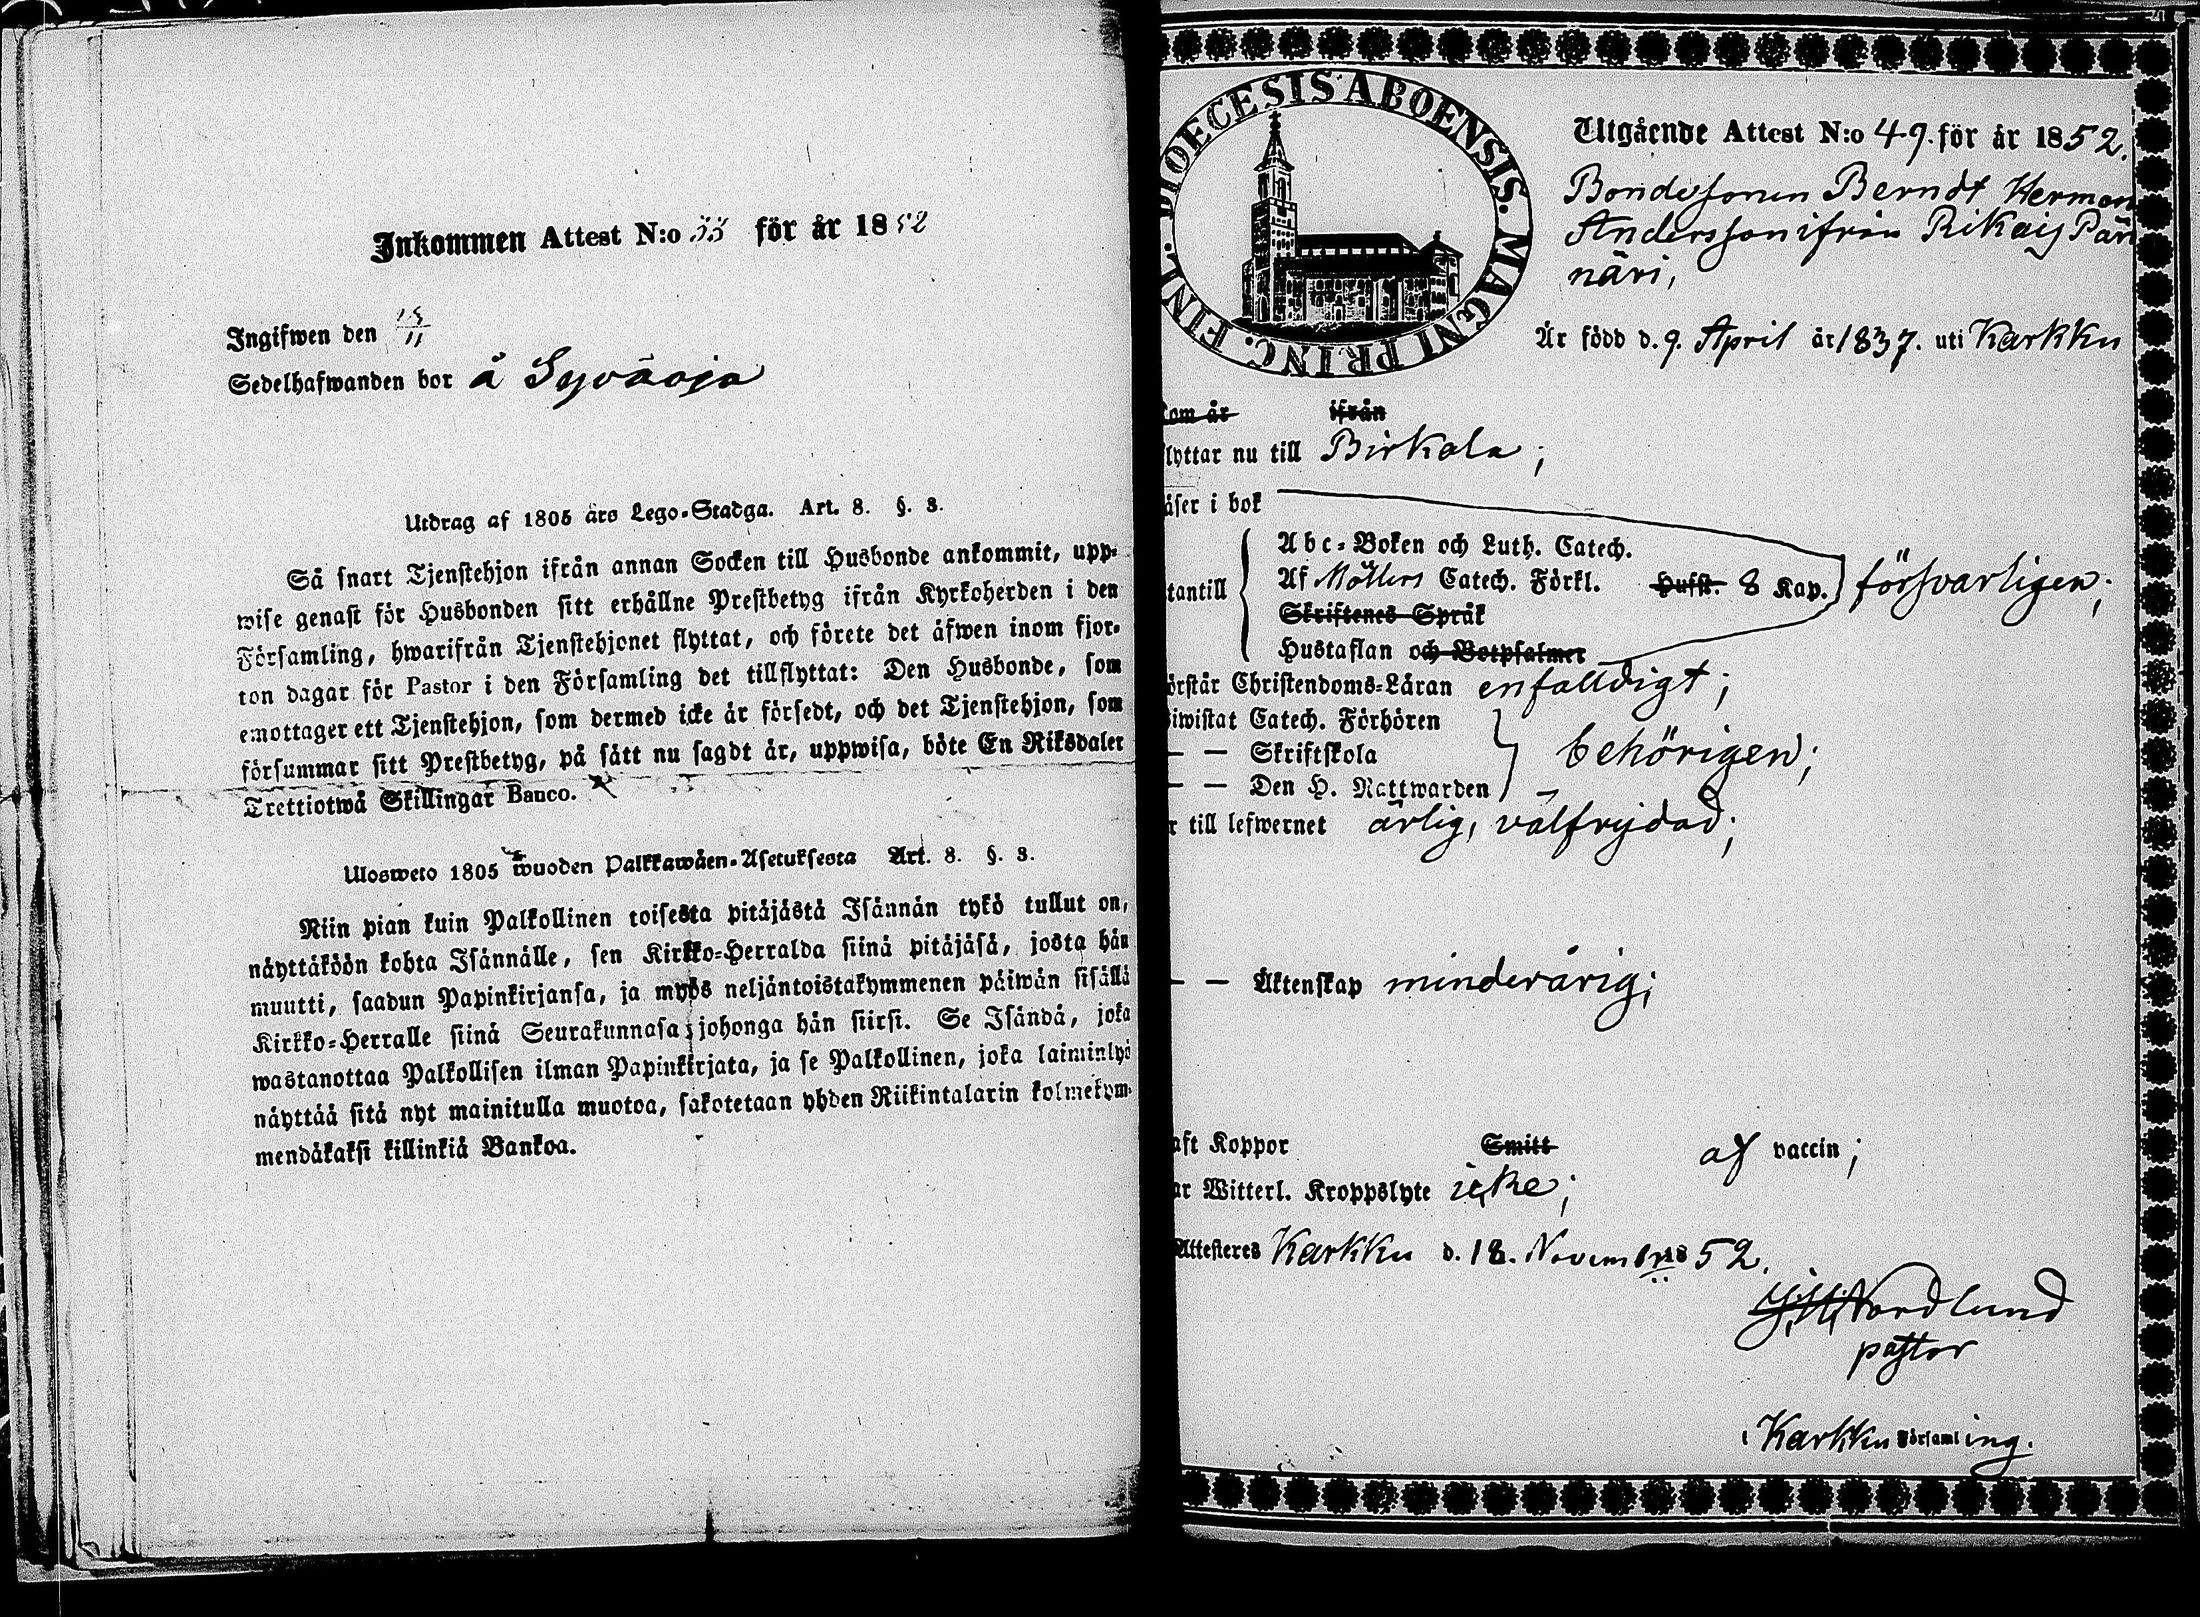 Inkommen Attest N:o 33 för år 1852
Ingifwen den 25/11
Sedelhafwanden bor å Syväoja
Utdrag af 1805 års Lego-Stadga. Art. 8. §. 3.
Så snart Tjenstehjon ifrån annan Socken till Husbonde ankommit, upp-
wise genast för Husbonden sitt erhållne Prestbetyg ifrån Kyrkoherden i den
Församling, hwarifrån Tjenstehjonet flyttat, och förete det äfwen inom fjor-
ton dagar för Pastor i den Församling det tillflyttat: Den Husbonde, som
emottager ett Tjenstehjon, som dermed icke är försedt, och det Tjenstehjon, som
försummar sitt Prestbetyg, på sätt nu sagdt är, uppwisa, böte En Riksdaler
Trettiotwå Skillingar Banco.
Ulosweto 1805 wuoden Palkkawäen-Asetuksesta Art. 8. §. 3.
Niin pian kuin Palkollinen toisesta pitäjästä Isännän tykö tullut on,
näyttäköön kohta Isännälle, sen Kirkko-Herralda siinä pitäjäsä, josta hän
muutti, saadun Papinkirjansa, ja myös neljäntoistakymmenen päiwän sisällä
Kirkko-Herralle siinä Seurakunnasa johonga hän siirsi. Se Isändä, joka
wastanottaa Palkollisen ilman Papinkirjata, ja se Palkollinen, joka laiminlyö
näyttää sitä nyt mainitulla muotoa, sakotetaan yhden Riikintalarin kolmekym-
mendäkaksi killinkiä Bankoa.
DIOECESIS ABOENSIS. MAGNI PRINC. FINL.
Utgående Attest N:o 49. för år 1852.
Bondesonen Berndt Herman
Andersson ifrån Rikais Pän
näri,
Är född d. 9. April år 1837. uti Karkku
kom år ifrån
flyttar nu till Birkala;
äser i bok
Abc-Boken och Luth. Catech.
tantill Af Möllers Catech. Förkl. Hufst. 8 Kap. försvarligen;
Skriftenes Språk
Hustaflan och Botpsalmer
örstår Christendoms-Läran enfalldigt;
iwistat Catech. Förhören
— — Skriftskola behörigen;
— — Den H. Nattwarden
r till lefwernet ärlig, välfrejdad;
— — Äktenskap minderårig;
aft Koppor Smitt af vaccin;
ar Witterl. Kroppslyte icke;
Attesteres Karkku d. 18. Novembr 1852.
Nordlund
pastor
i Karkku Församling.